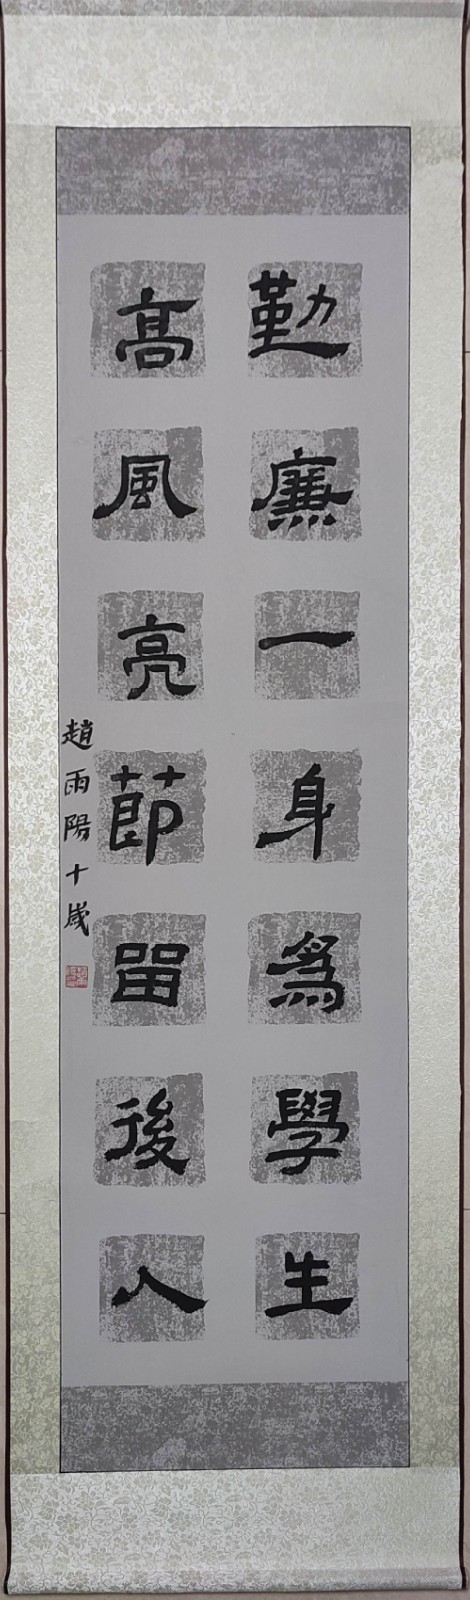 勤廉一身爲學生
高風亮節留後人
趙雨陽十歲